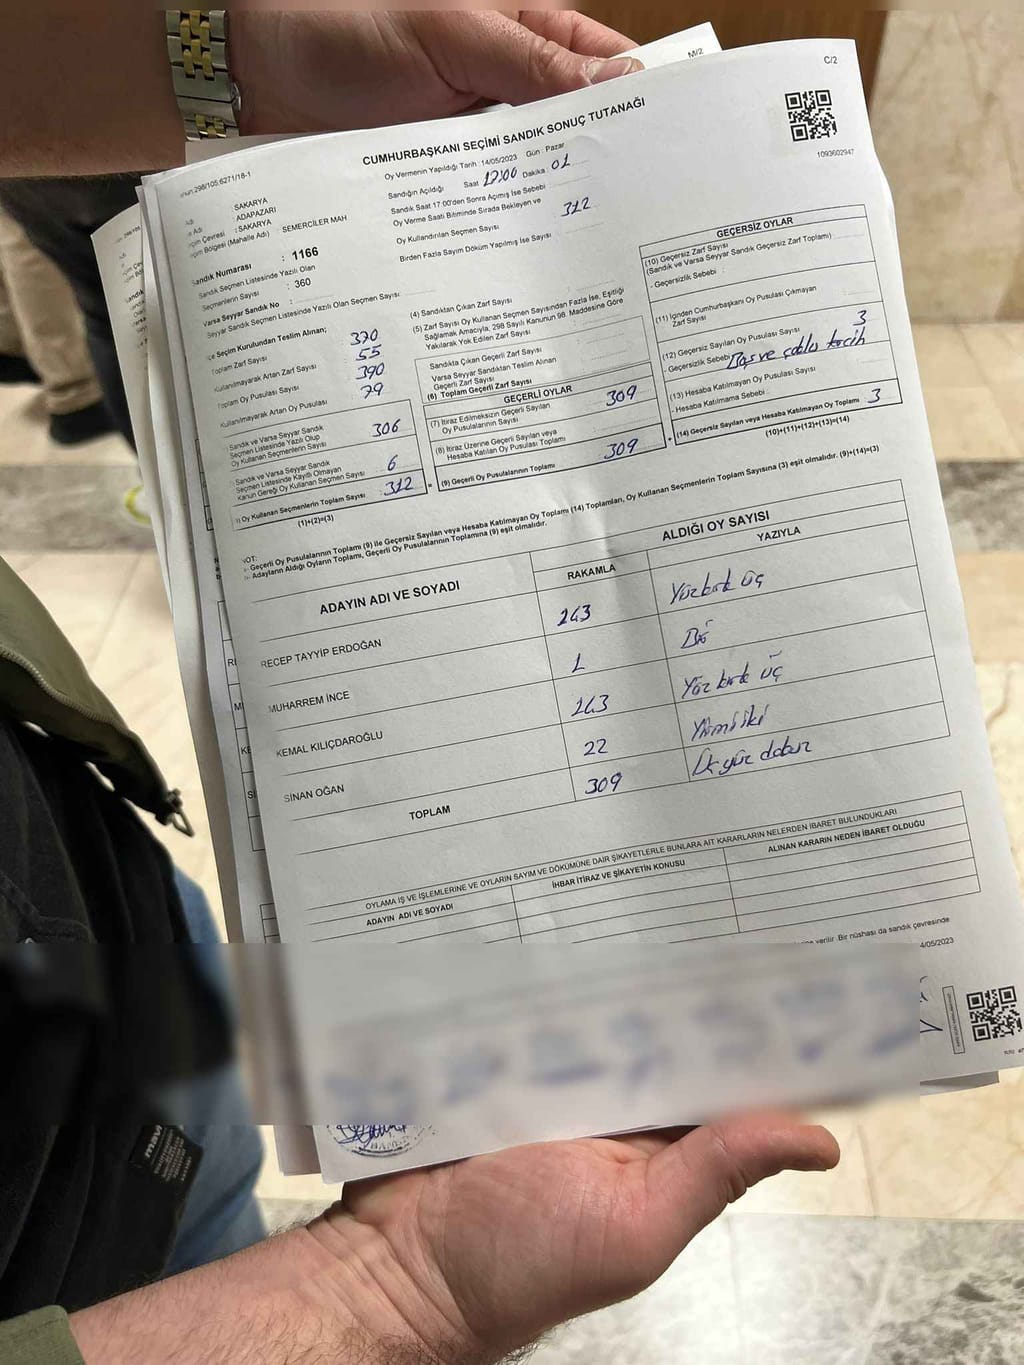 M/2
C/2
CUMHURBAŞKANI SEÇİMİ SANDIK SONUÇ TUTANAĞI
1093602947
298/105.6271/18-1
Oy Vermenin Yapıldığı Tarih : 14/05/2023 Gün : Pazar
Sandığın Açıldığı Saat 17:00 Dakika : 01
Sandık Saat 17:00'den Sonra Açımış İse Sebebi
Oy Verme Saati Bitiminde Sırada Bekleyen ve
Oy Kullandırılan Seçmen Sayısı 312
Birden Fazla Sayım Döküm Yapılmış İse Sayısı
: SAKARYA
: ADAPAZARI
Çevresi : SAKARYA
Bölgesi (Mahalle Adı) : SEMERCİLER MAH
Sandık Numarası : 1166
Sandık Seçmen Listesinde Yazılı Olan
Seçmenlerin Sayısı : 360
Varsa Seyyar Sandık No :
Seyyar Seçmen Listesinde Yazılı Olan Seçmen Sayısı:
Seçim Kurulundan Teslim Alınan;
Toplam Zarf Sayısı 370
Kullanılmayarak Artan Zarf Sayısı 55
Toplam Oy Pusulası Sayısı 390
Kullanılmayarak Artan Oy Pusulası 79
Sandık ve Varsa Seyyar Sandık
Seçmen Listesinde Yazılı Olup
Oy Kullanan Seçmenlerin Sayısı 306
Sandık ve Varsa Seyyar Sandık
Seçmen Listesinde Kayıtlı Olmayan
Kanun Gereği Oy Kullanan Seçmen Sayısı 6
Oy Kullanan Seçmenlerin Toplam Sayısı : 312
(1)+(2)=(3)
(4) Sandıktan Çıkan Zarf Sayısı
(5) Zarf Sayısı Oy Kullanan Seçmen Sayısından Fazla İse, Eşitliği
Sağlamak Amacıyla, 298 Sayılı Kanunun 98. Maddesine Göre
Yakılarak Yok Edilen Zarf Sayısı
Sandıkta Çıkan Geçerli Zarf Sayısı
Varsa Seyyar Sandıktan Teslim Alınan
Geçerli Zarf Sayısı
(6) Toplam Geçerli Zarf Sayısı
GEÇERLİ OYLAR
(7) İtiraz Edilmeksizin Geçerli Sayılan
Oy Pusulasının Sayısı 309
(8) İtiraz Üzerine Geçerli Sayılan veya
Hesaba Katılan Oy Pusulası Toplamı
= (9) Geçerli Oy Pusulalarının Toplamı 309
GEÇERSİZ OYLAR
(10) Geçersiz Zarf Sayısı
(Sandık ve Varsa Seyyar Sandık Geçersiz Zarf Toplamı)
Geçersizlik Sebebi :
(11) İçinden Cumhurbaşkanı Oy Pusulası Çıkmayan
Zarf Sayısı
(12) Geçersiz Sayılan Oy Pusulası Sayısı 3
Geçersizlik Sebebi Boş ve çoklu tercih
(13) Hesaba Katılmayan Oy Pusulası Sayısı
Hesaba Katılmama Sebebi :
+ (14) Geçersiz Sayılan veya Hesaba Katılmayan Oy Toplamı 3
(10)+(11)+(12)+(13)=(14)
NOT:
- Geçerli Oy Pusulalarının Toplamı (9) ile Geçersiz Sayılan veya Hesaba Katılmayan Oy Toplamı (14) Toplamları, Oy Kullanan Seçmenlerin Toplam Sayısına (3) eşit olmalıdır. (9)+(14)=(3)
- Adayların Aldığı Oyların Toplamı, Geçerli Oy Pusulalarının Toplamına (9) eşit olmalıdır.
ADAYIN ADI VE SOYADI
ALDIĞI OY SAYISI
RAKAMLA YAZIYLA
RECEP TAYYİP ERDOĞAN 143 Yüz kırk üç
MUHARREM İNCE 1 Bir
KEMAL KILIÇDAROĞLU 143 Yüz kırk üç
SİNAN OĞAN 22 Yirmi iki
TOPLAM 309 Üç yüz dokuz
OYLAMA İŞ VE İŞLEMLERİNE VE OYLARIN SAYIM VE DÖKÜMÜNE DAİR ŞİKAYETLERLE BUNLARA AİT KARARLARIN NELERDEN İBARET BULUNDUKLARI
ADAYIN ADI VE SOYADI
İHBAR İTİRAZ VE ŞİKAYETİN KONUSU
ALINAN KARARIN NEDEN İBARET OLDUĞU
verilir. Bir nüshası da sandık çevresinde
4/05/2023
mavi